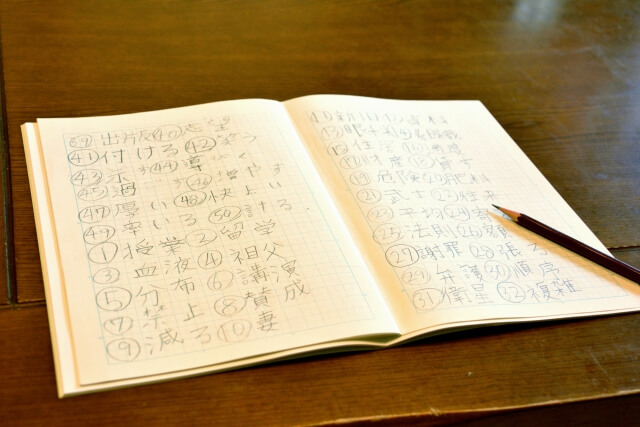 ㊴ 出版 ㊵ 志望
㊶ 付ける ㊷ 笑う
㊸ 示す ㊹ 導く
㊺ 過 ㊻ 増やす
㊼ 厚い ㊽ 快い
㊾ 率いる ㊿ 計る
① 授業 ② 留学
③ 血液 ④ 祖父
⑤ 分布 ⑥ 講演
⑦ 禁止 ⑧ 賛成
⑨ 減る ⑩ 妻
新旧 ⑫ 資料
⑬ 眼
⑮ 住居 ⑯
⑰ 財産 ⑱
⑲ 危険 ⑳ 肥料
㉑ 武士 往来
㉓ 平均 ㉔
㉕ 法則 ㉖
㉗ 謝罪 ㉘ 張る
㉙ 弁護 ㉚ 順序
㉛ 衛星 ㉜ 複雑